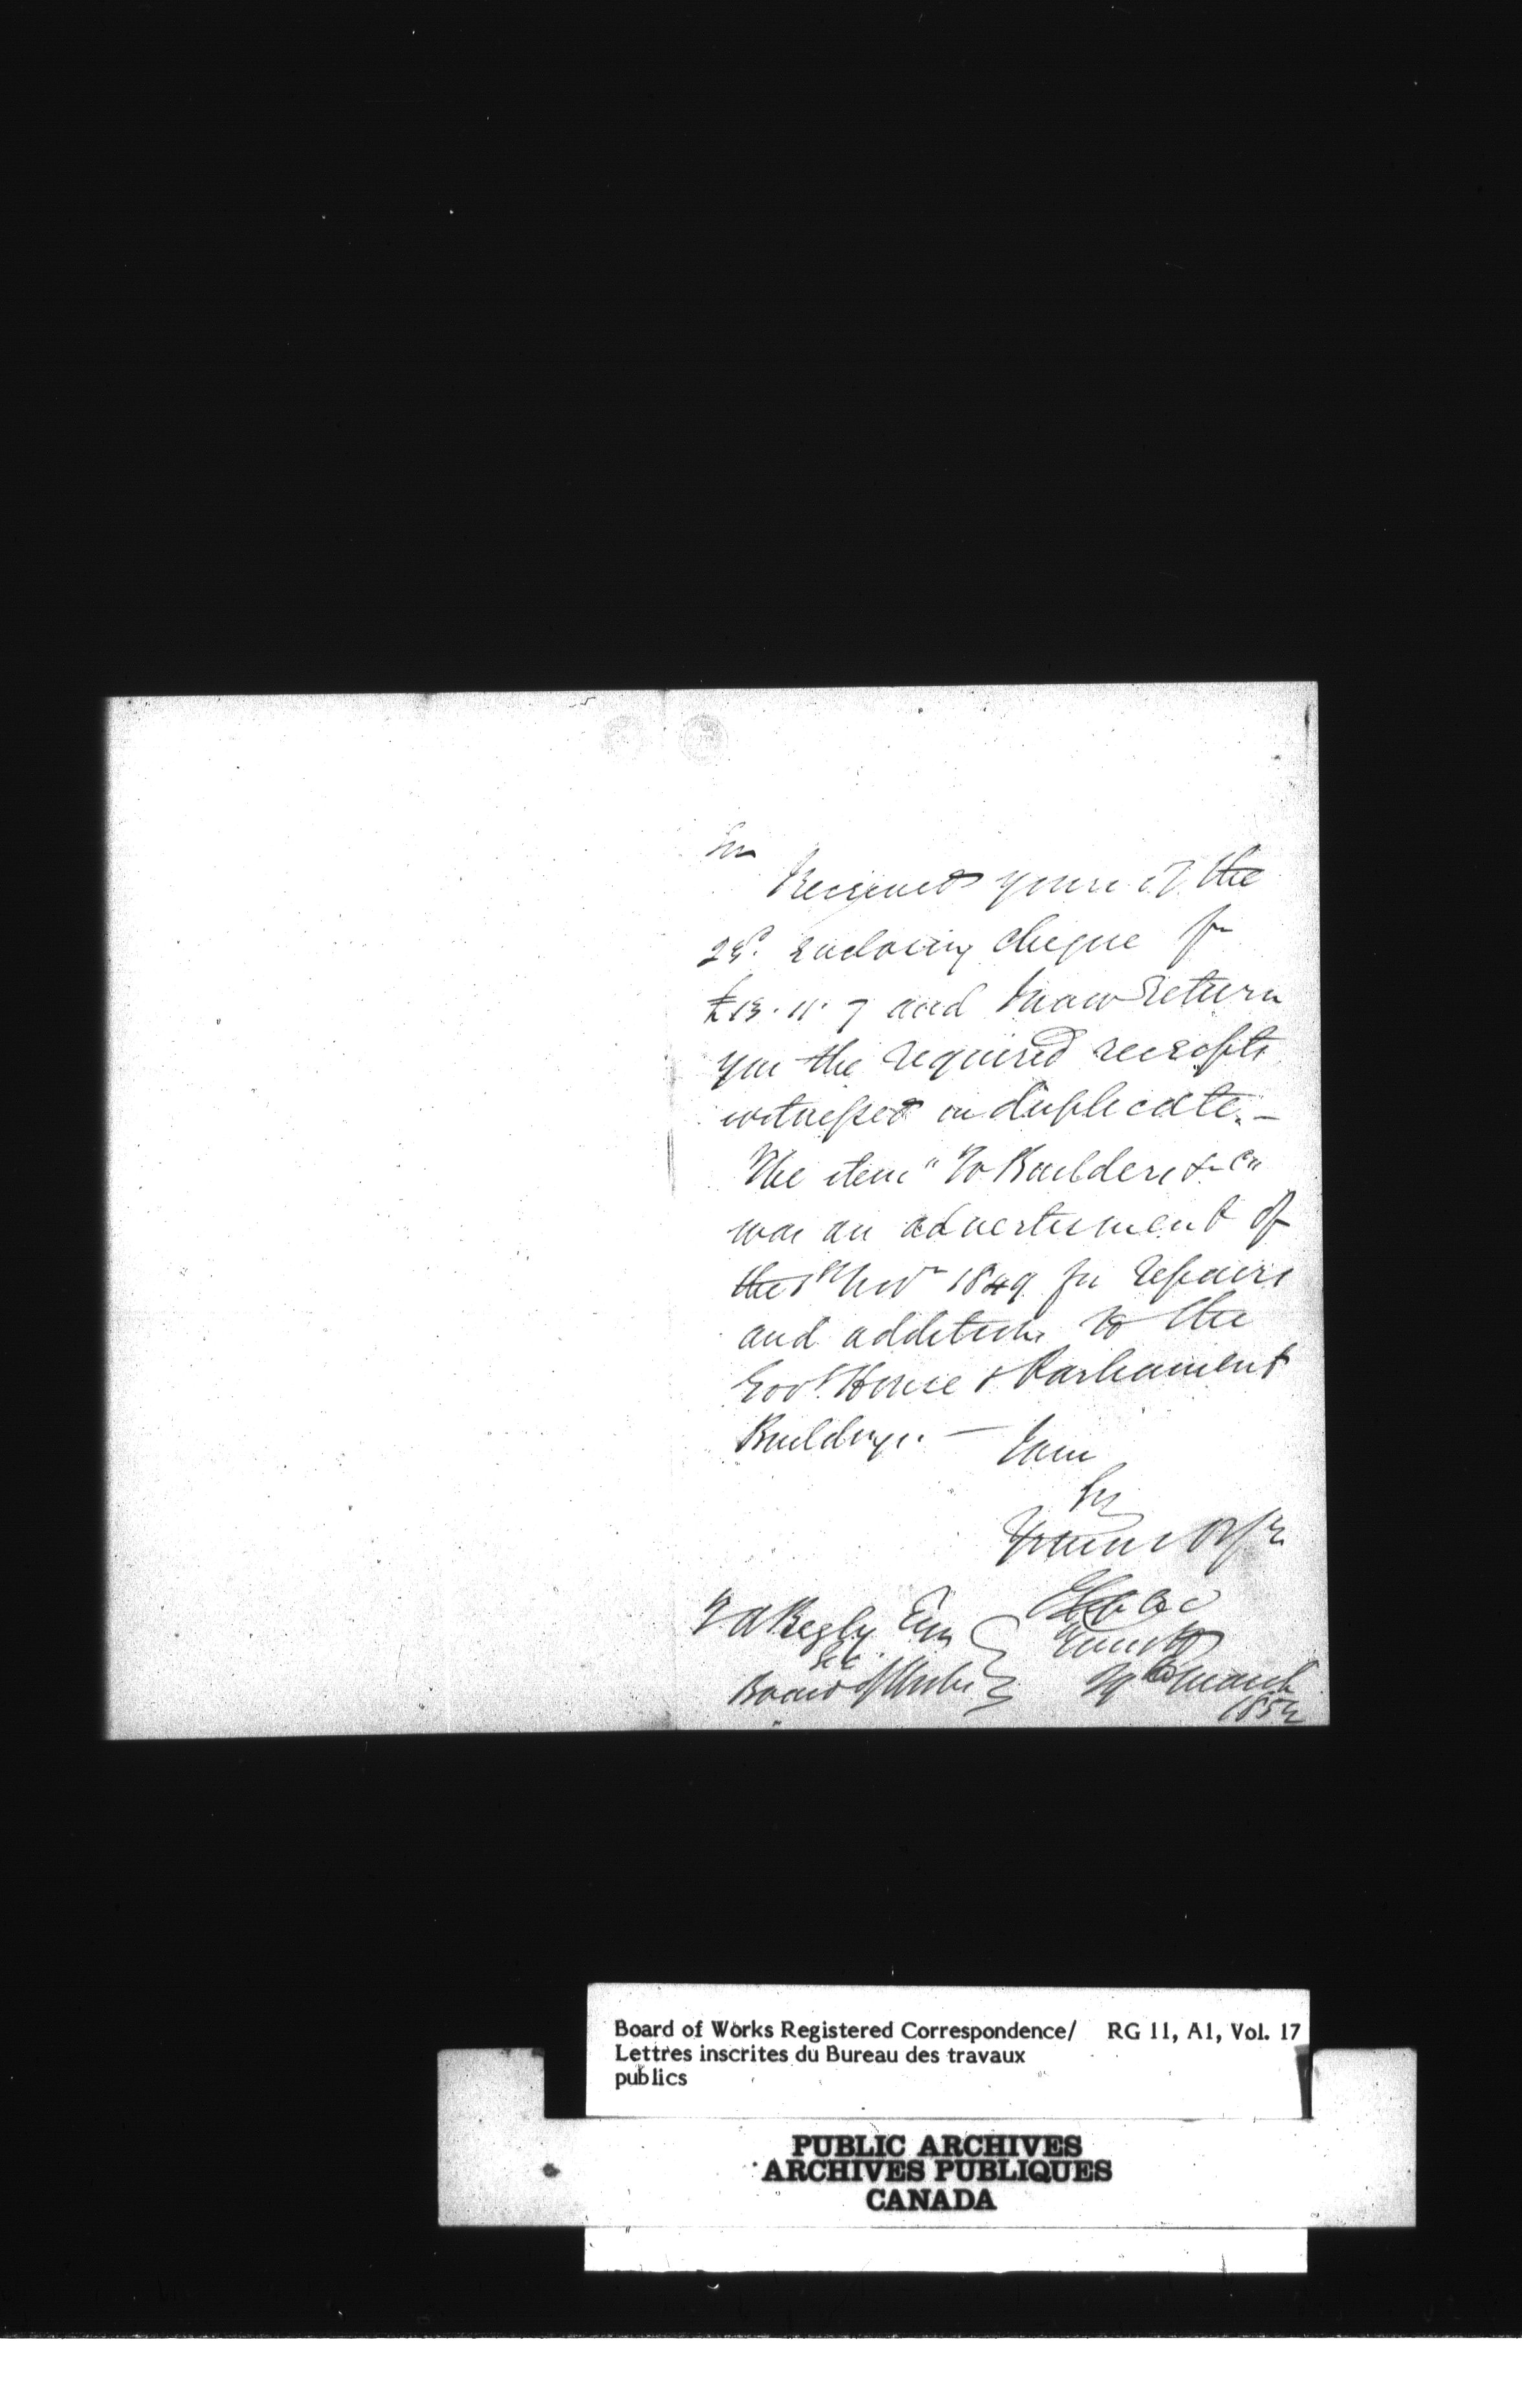 Sir
I received yours of the
25. enclosing cheque for
£13. 11. 7 and I now return
you the required receipts
witnessed in duplicate. —
The item "To Builders &c"
was an advertisement of
the 1st Novr 1849 for repairs
and additions to the
Govt. House & Parliament
Buildings. — I am
Sir
Yours
T A Begly Esq
Sec
Board of Works
March
1852
Board of Works Registered Correspondence/ RG 11, A1, Vol. 17
Lettres inscrites du Bureau des travaux
publics
PUBLIC ARCHIVES
ARCHIVES PUBLIQUES
CANADA